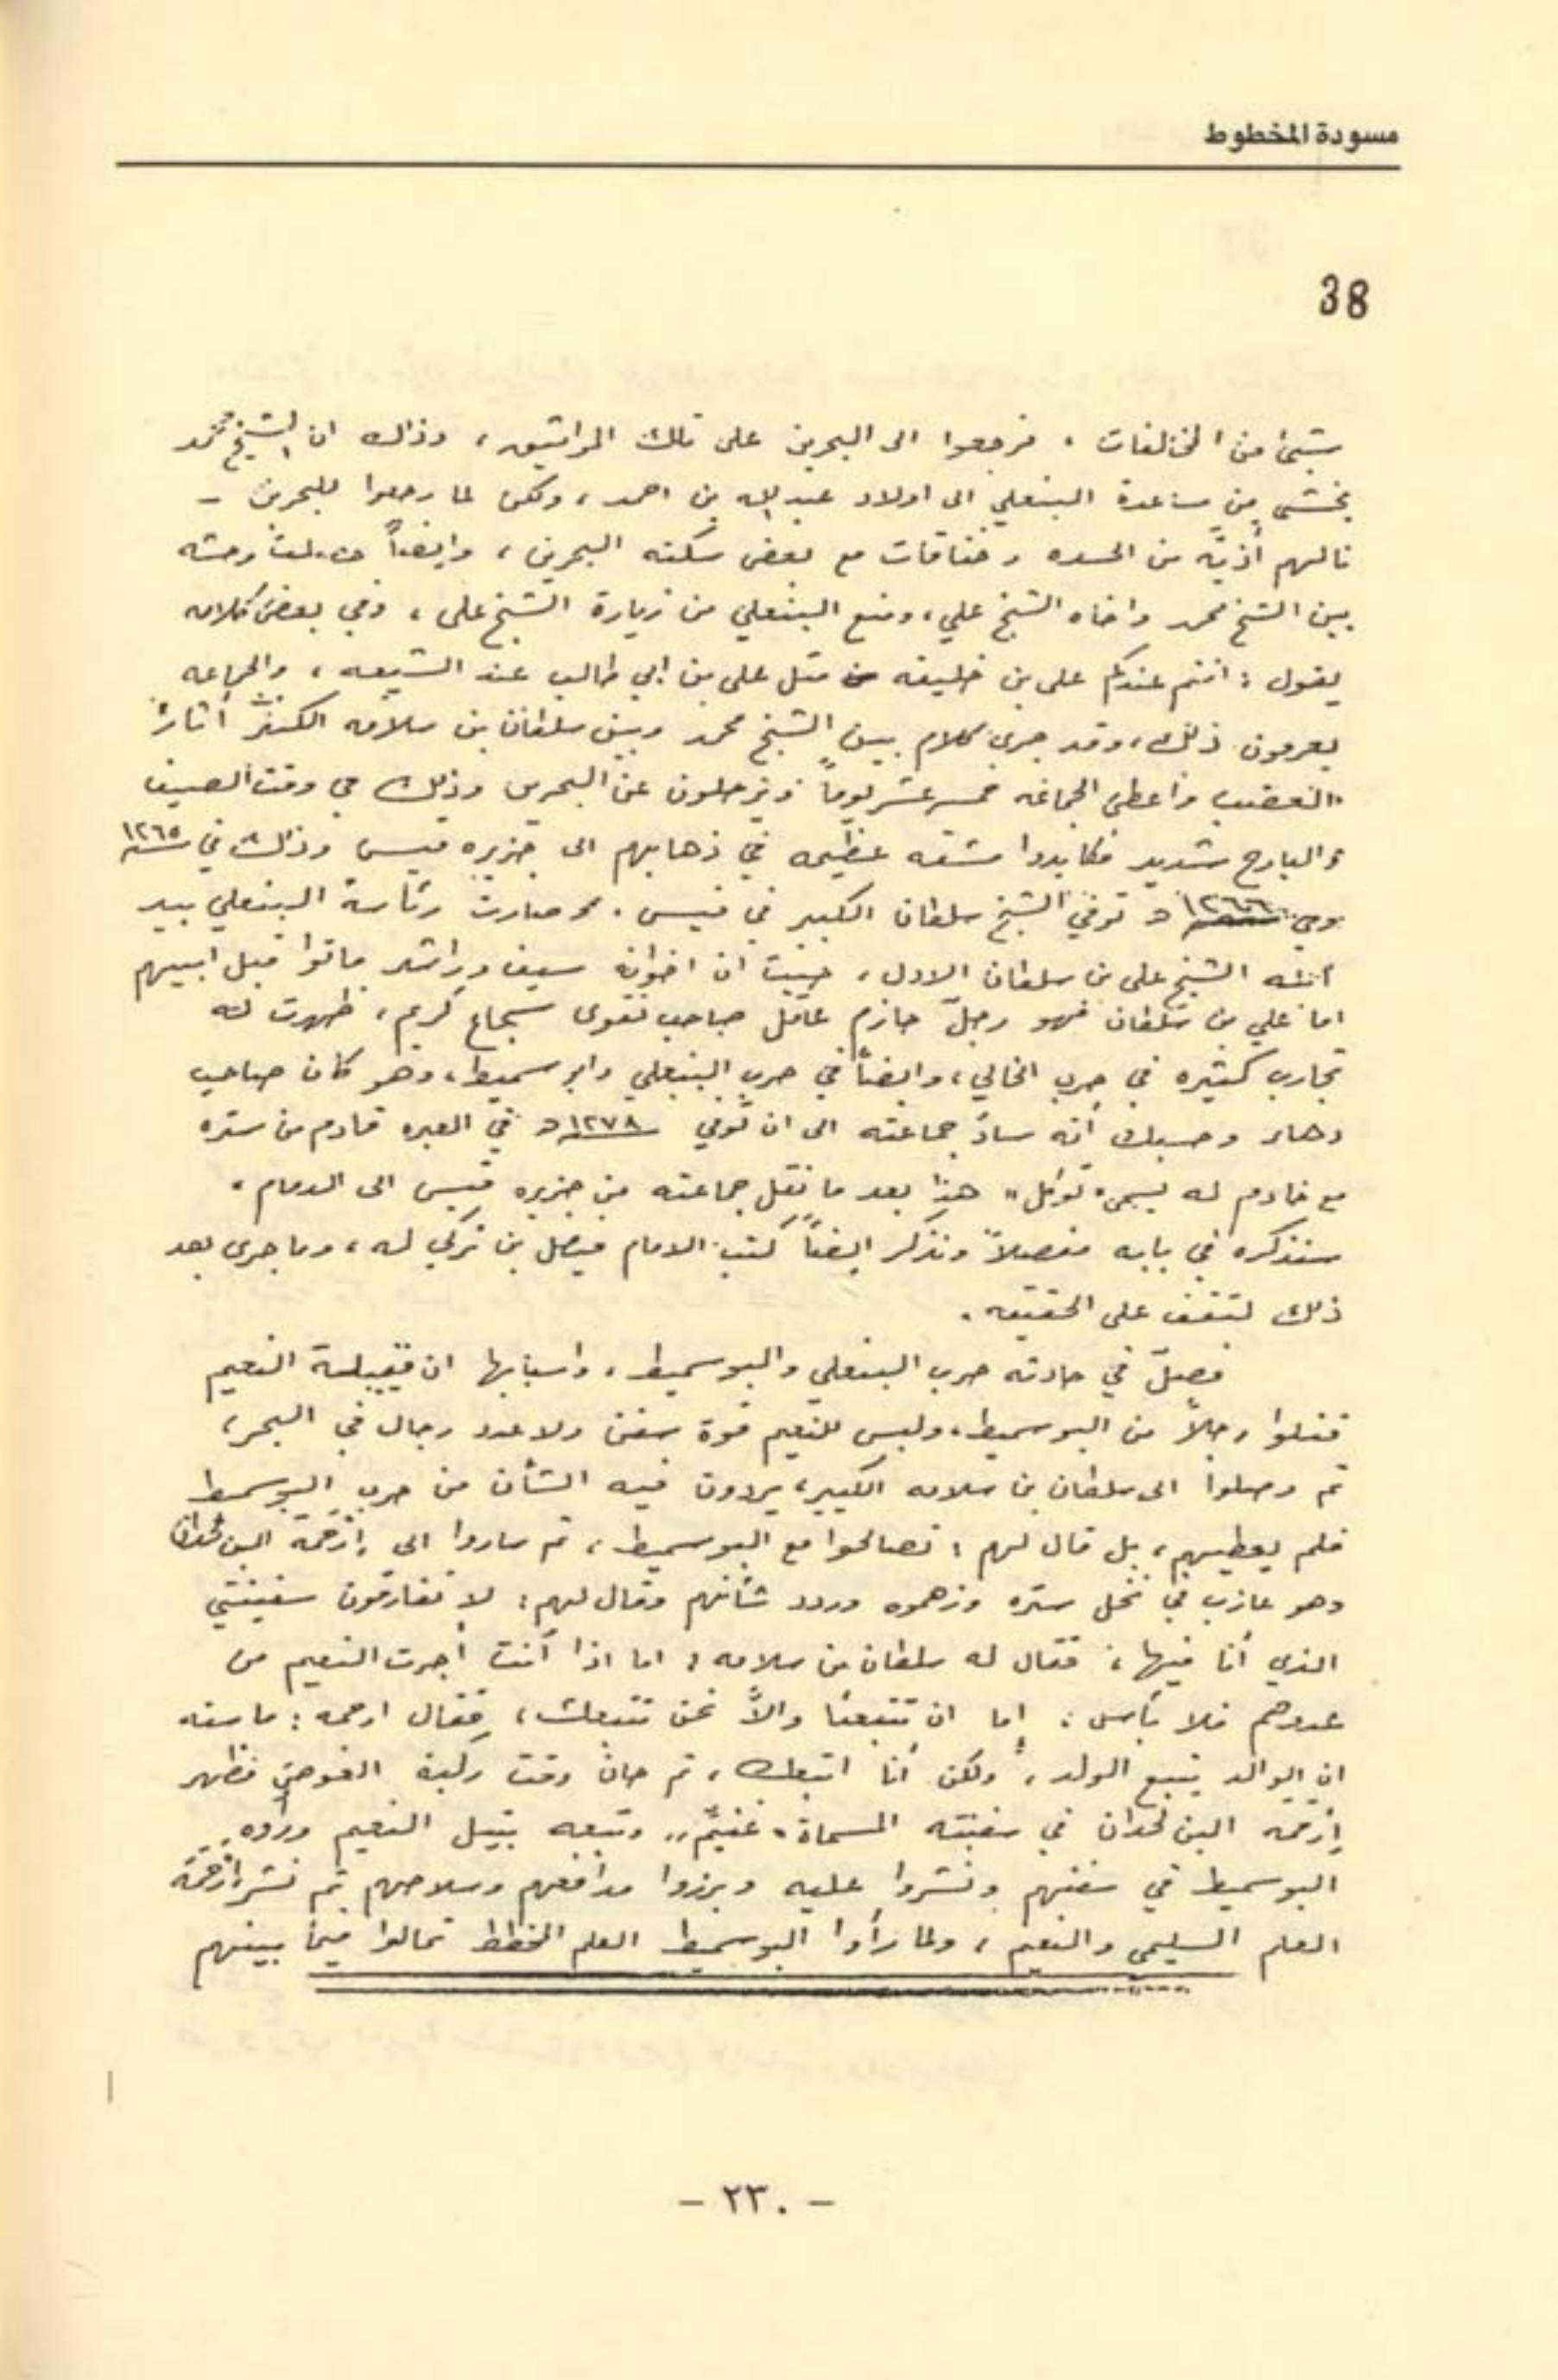 مسودة المخطوط
38
بشيئ من المخالفات ، فرجعوا الى البحرين على تلك المواثيق ، وذالك ان الشيخ محمد
يخشى من مساعدة البنعلي الى اولاد عبدالله بن احمد ، ولكن لما رجعوا للبحرين -
نالهم أذيّه من الحسده وخناقات مع بعض سكنه البحرين ، وايضاً حصلت وحشه
بين الشيخ محمد واخاه الشيخ علي ، ومنع البنعلي من زيارة الشيخ علي ، وفي بعض كلامه
يقول : انتم عندكم علي بن خليفه مثل علي بن ابي طالب عند الشيعه ، والجماعه
يعرفون ذلك ، وقد جرى كلام بين الشيخ محمد وبين سلطان بن سلامه الكبير أثار
الغضب واعطى الجماعه خمسة عشر يوماً ويرحلون عن البحرين وذلك في وقت الصيف
والبارح شديد فكابدوا مشقه عظيمه في ذهابهم الى جزيره قيس وذالك في سنة ١٢٦٥
وفي سنة ١٢٦٦ه توفي الشيخ سلطان الكبير في قيس . وصارت رئاسة البنعلي بيد
ابنه الشيخ علي بن سلطان الاول ، حيث ان اخوانه سيف وراشد ماتوا قبل ابيهم
اما علي بن سلطان فهو رجلّ حازم عاقل صاحب تقوى شجاع كريم ، ظهرت له
تجارب كثيره في حرب الخالي ، وايضاً في حرب البنعلي وابوسميط ، وهو كان صاحب
دهاء وحسبك أنه سادَ جماعته الى ان تُوفي سنة ١٢٧٨ه في العبره قادم من ستره
مع خادم له يسمى "توكل" هذا بعد ما نقل جماعته من جزيره قيس الى الدمام ،
سنذكره في بابه مفصلاً ونذكر ايضاً كتب الامام فيصل بن تركي له ، وما جرى بعد
ذلك لتقف على الحقيقه .
فصلّ في حادثه حرب البنعلي والبوسميط ، واسبابها ان قبيلة النعيم
قتلوا رجلاً من البوسميط ، وليس للنعيم قوة سفن ولا عدد رجال في البحر ،
ثم وصلوا الى سلطان بن سلامه الكبير ، يردون فيه الشأن من حرب البوسميط
فلم يعطيهم ، بل قال لهم : تصالحوا مع البوسميط ، ثم ساروا الى إزحمة البن لحدان
وهو عازب في نخل ستره وزهموه وردد شأنهم وقال لهم : لا تفارقون سفينتي
الذي أنا فيها ، فقال له سلطان بن سلامه : اما اذا أنت أجرت النعيم من
عدوهم فلا بأس : إما ان تتبعنا والاَّ نحن نتبعك ، فقال ازحمه : ما سنه
ان الوالد يتبع الولد ، ولكن أنا اتبعك ، ثم حان وقت ركبة الغوص فظهر
إزحمه البن لحدان في سفينته المسماة "غنيم" وتبعه بتيل النعيم ورأوه
البوسميط في سفنهم ونشروا عليه وبرزوا مدافعهم وسلاحهم ثم نشر ازحمه
العلم السليمي والنعيم ، ولما رأوا البوسميط العلم المخطط تمالوا فيما بينهم
- ٢٣٠ -